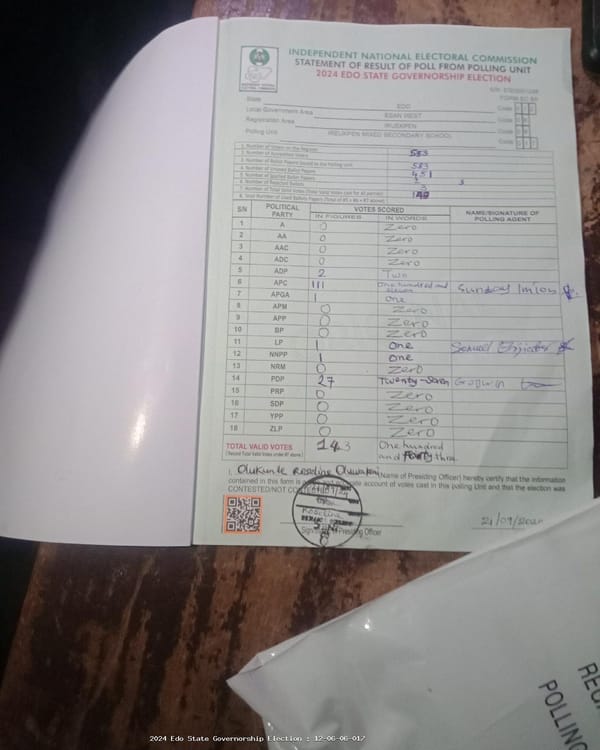 INDEPENDENT NATIONAL ELECTORAL COMMISSION
STATEMENT OF RESULT OF POLL FROM POLLING UNIT
2024 EDO STATE GOVERNORSHIP ELECTION
State EDO Code
Local Government Area ESAN WEST Code
Registration Area Code
Polling Unit MIXED SECONDARY SCHOOL Code
1. Number of Voters on the Register 583
2. Number of Accredited Voters
3. Number of Ballot Papers Issued to the Polling Unit 583
4. Number of Unused Ballot Papers 451
5. Number of Spoiled Ballot Papers
6. Number of Rejected Ballots 3
7. Number of Total Valid Votes (Total Valid Votes cast for all parties)
8. Total Number of Used Ballot Papers (Total of #5 + #6 + #7 above)
SN POLITICAL PARTY VOTES SCORED NAME/SIGNATURE OF POLLING AGENT
IN FIGURES IN WORDS
1 A 0 Zero
2 AA 0 Zero
3 AAC 0 Zero
4 ADC 0 Zero
5 ADP 2 Two
6 APC 111 One hundred and eleven Sunday
7 APGA 1 One
8 APM 0 Zero
9 APP 0 Zero
10 BP 0 Zero
11 LP 1 One
12 NNPP 1 One
13 NRM 0 Zero
14 PDP 27 Twenty-seven
15 PRP 0 Zero
16 SDP 0 Zero
17 YPP 0 Zero
18 ZLP 0 Zero
TOTAL VALID VOTES 143 One hundred
and forty three
I, Olukunle Roseline (Name of Presiding Officer) hereby certify that the information
contained in this form is account of votes cast in this polling Unit and that the election was
CONTESTED/NOT
Roseline
Presiding Officer
21/09/2024
POLLING
2024 Edo State Governorship Election : 12-06-06-017